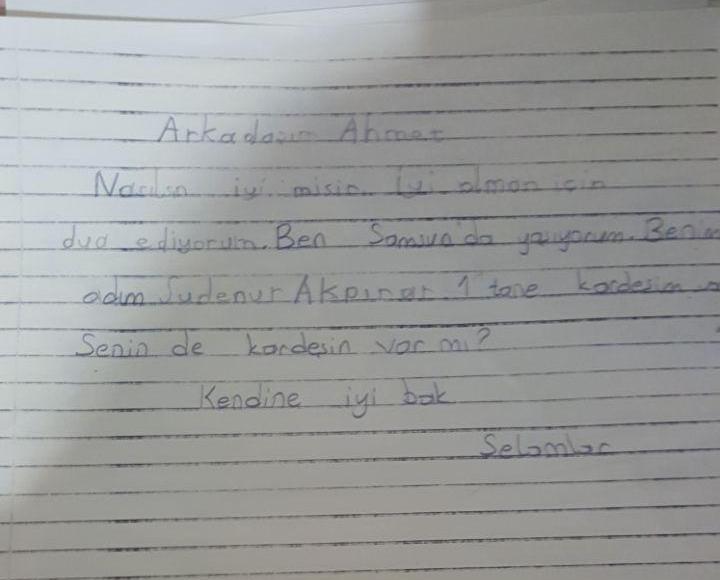 Arkadaşım Ahmet
Nasılsın iyi misin. İyi olman için
dua ediyorum. Ben Samsun'da yaşıyorum. Benim
adım Sudenur Akpınar. 1 tane kardeşim
Senin de kardeşin var mı?
Kendine iyi bak
Selamlar